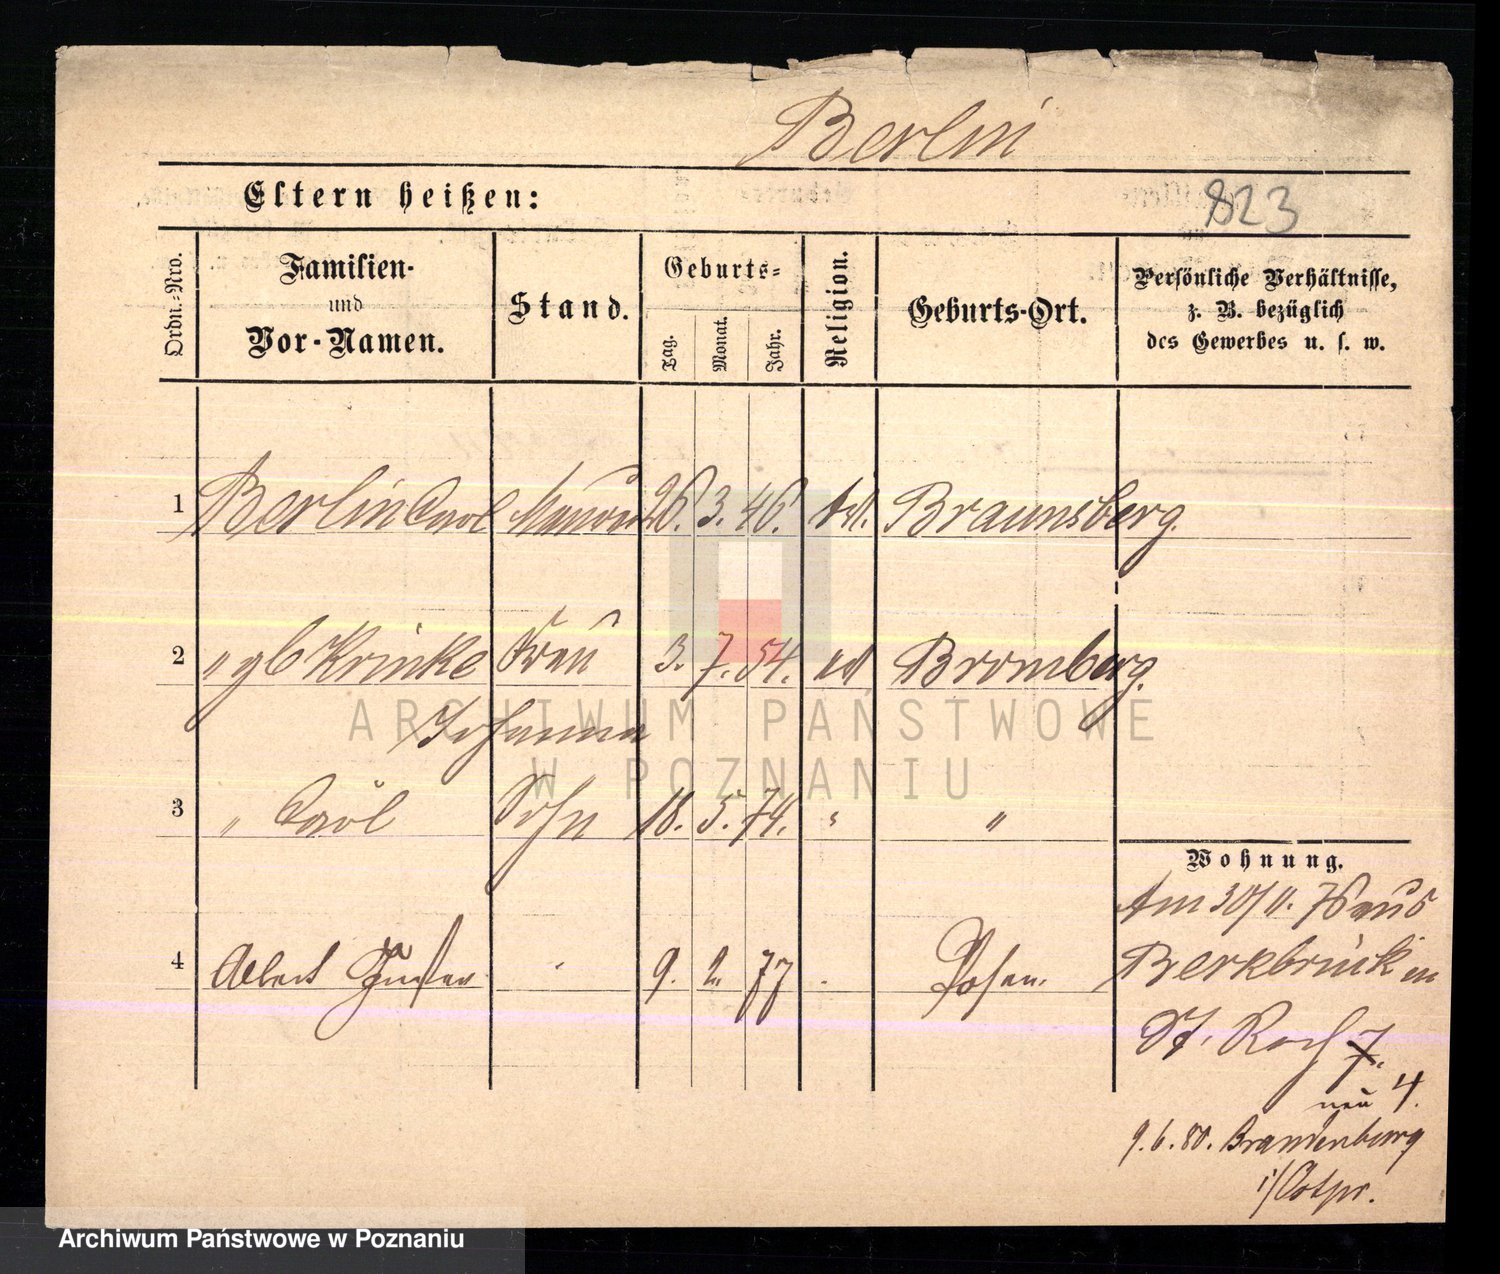 Berlin
823
Eltern heißen:
Ordn.-Nro.
Familien-
und
Vor-Namen.
Stand.
Geburts-
Tag.
Monat.
Jahr.
Religion.
Geburts-Ort.
Persönliche Verhältnisse,
z. B. bezüglich
des Gewerbes u. s. w.
1 Berlin Carl 26. 3. 46. Braunsberg.
2 " gb Krinke Frau 3. 7. 54. Bromberg.
Johanna
3 " Carl Sohn 18. 5. 74. " "
4 Albert Gustav 9. 2. 77 Posen.
Wohnung.
Am 30/11. 76 aus
Berkbrück in
St. Roch 7.
neu 4.
9.6.80. Brandenburg
i/Ostpr.
ARCHIWUM PAŃSTWOWE
W POZNANIU
Archiwum Państwowe w Poznaniu